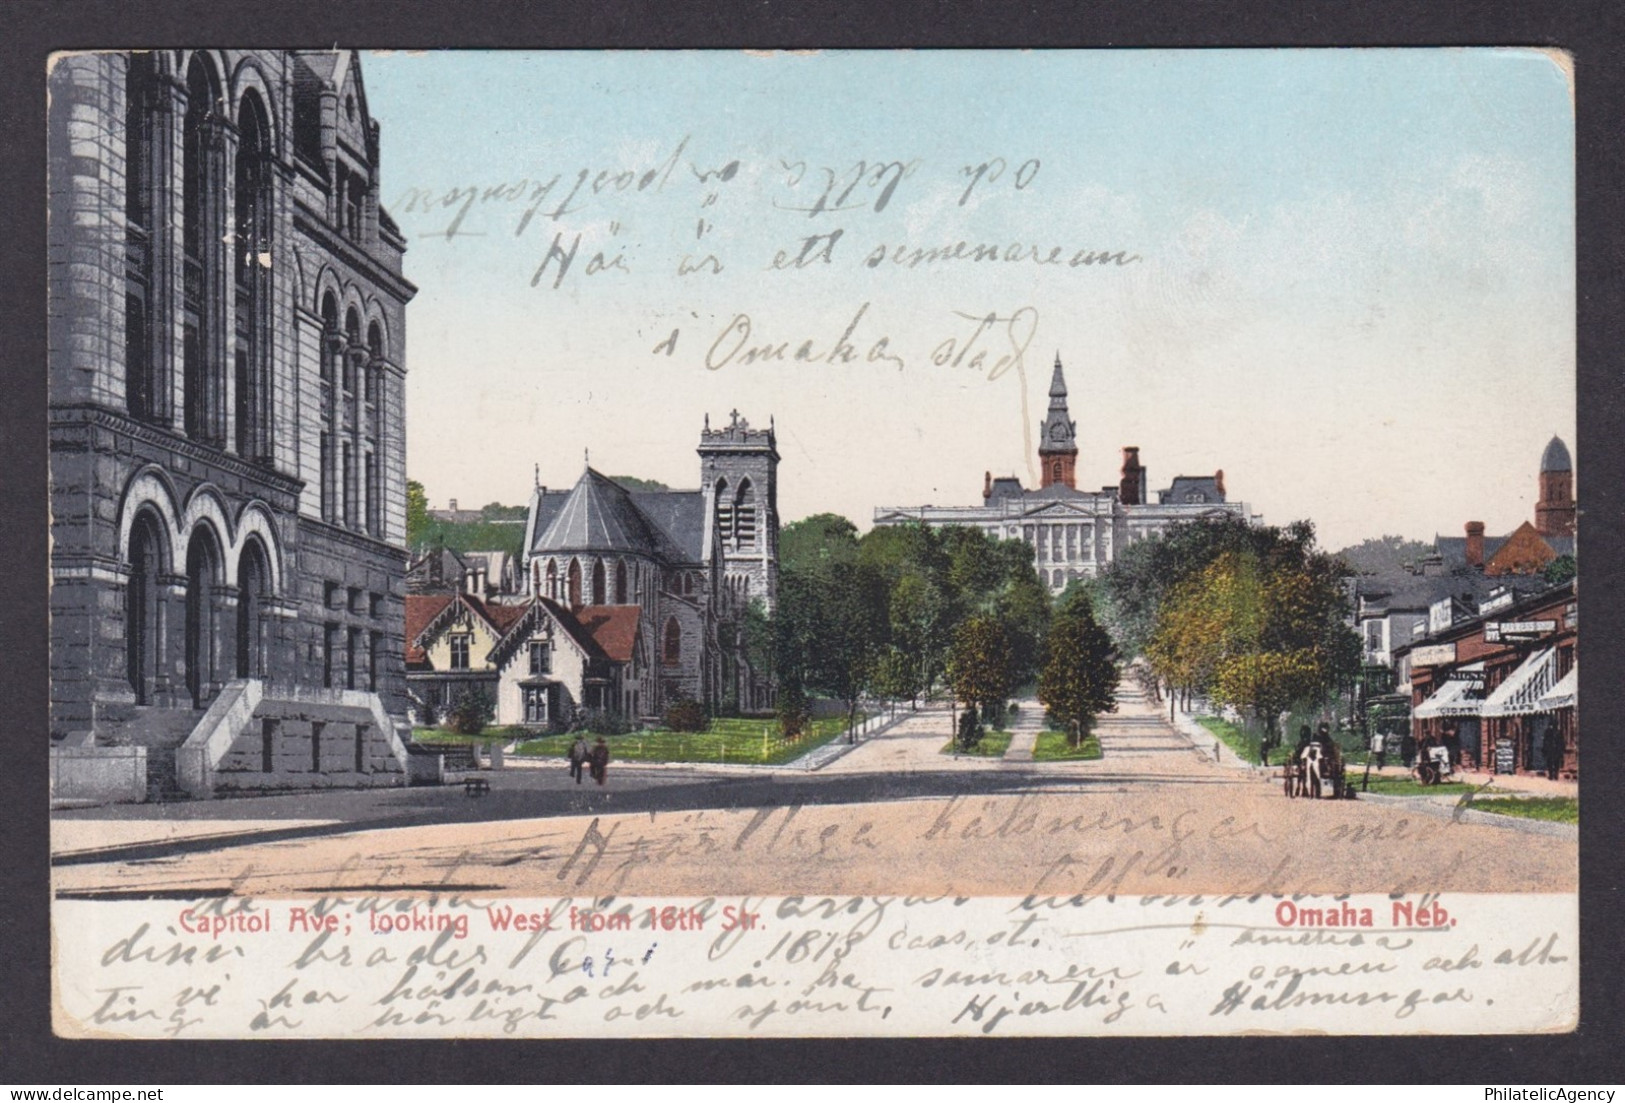 Och detta är postkontore
Här är ett semenarium
i Omaha stad
SIGNS
Hjärtliga hälsningar med
de bästa tillönskas af
Capitol Ave; looking West from 16th Str.
Omaha Neb.
din broder Carl 1813 Cass st.
america
vi har hälsan och mår bra somaren är och allt
ting är härligt och skönt, Hjertliga Hälsningar.
PhilatelicAgency